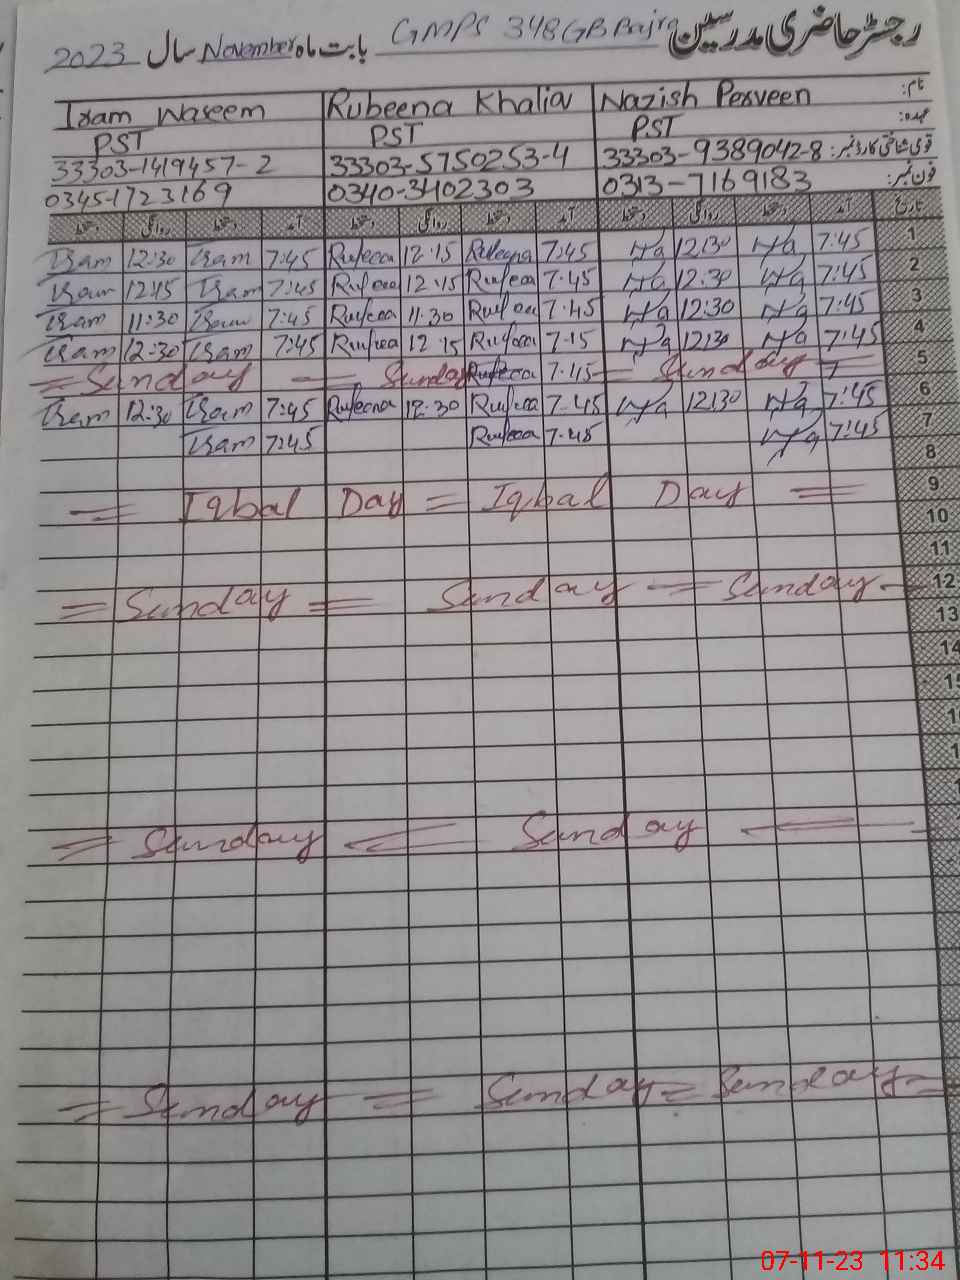 رجسٹر حاضری مدرسین GMPS 348 GB Bajra بابت ماہ November سال 2023
نام: Nazish Perveen Rubeena Khalid Iram Waseem
عہدہ: PST PST PST
قومی شناختی کارڈ نمبر: 33303-9389042-8 33303-5750253-4 33303-1419457-2
فون نمبر: 0313-7169183 0340-3402303 0345-1723169
تاریخ آمد دستخط روانگی دستخط آمد دستخط روانگی دستخط آمد دستخط روانگی دستخط
1 7:45 12:30 7:45 Rubeena 12:15 Rubeena 7:45 Iram 12:30 Iram
2 7:45 12:30 7:45 Rubeena 12:15 Rubeena 7:45 Iram 12:15 Iram
3 7:45 12:30 7:45 Rubeena 11:30 Rubeena 7:45 Iram 11:30 Iram
4 7:45 12:30 7:45 Rubeena 12:15 Rubeena 7:45 Iram 12:30 Iram
5 = Sunday — Sunday Rubeena 7:45 = Sunday =
6 7:45 12:30 7:45 Rubeena 12:30 Rubeena 7:45 Iram 12:30 Iram
7 7:45 7:45 Rubeena 7:45 Iram
8
9 = Iqbal Day = Iqbal Day =
10
11
12 = Sunday = Sunday = Sunday -
13
14
= Sunday = Sunday =
= Sunday = Sunday = Sunday =
07-11-23 11:34